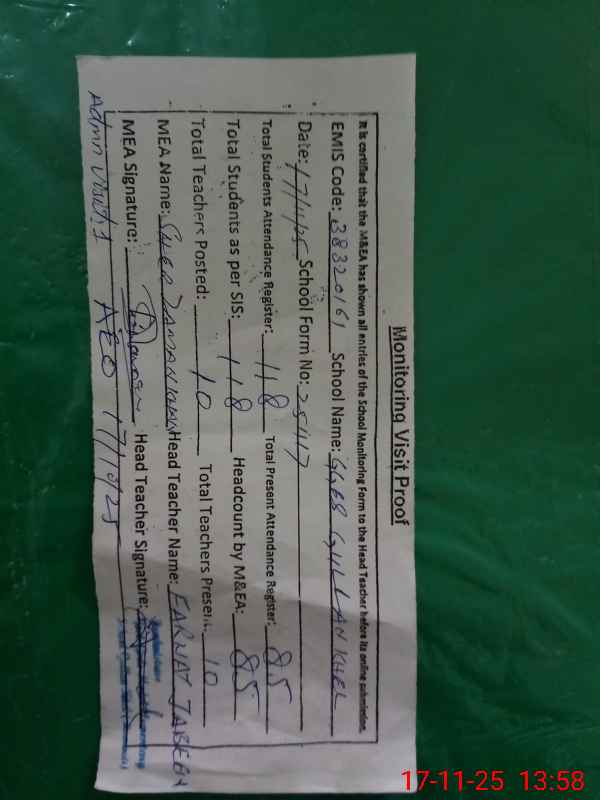 Monitoring Visit Proof
It is certified that the M&EA has shown all entries of the School Monitoring Form to the Head Teacher before its online submission.
EMIS Code: 38320161 School Name: GGES GULLAN KHEL
Date: 17/11/25 School Form No: 25417
Total Students Attendance Register: 118 Total Present Attendance Register: 85
Total Students as per SIS: 118 Headcount by M&EA: 85
Total Teachers Posted: 10 Total Teachers Present: 10
MEA Name: SHER ZAMAN KHAN Head Teacher Name: FARHAT JABEEN
MEA Signature: Head Teacher Signature:
Admn Visit: 1 AEO 17/10/25
17-11-25 13:58